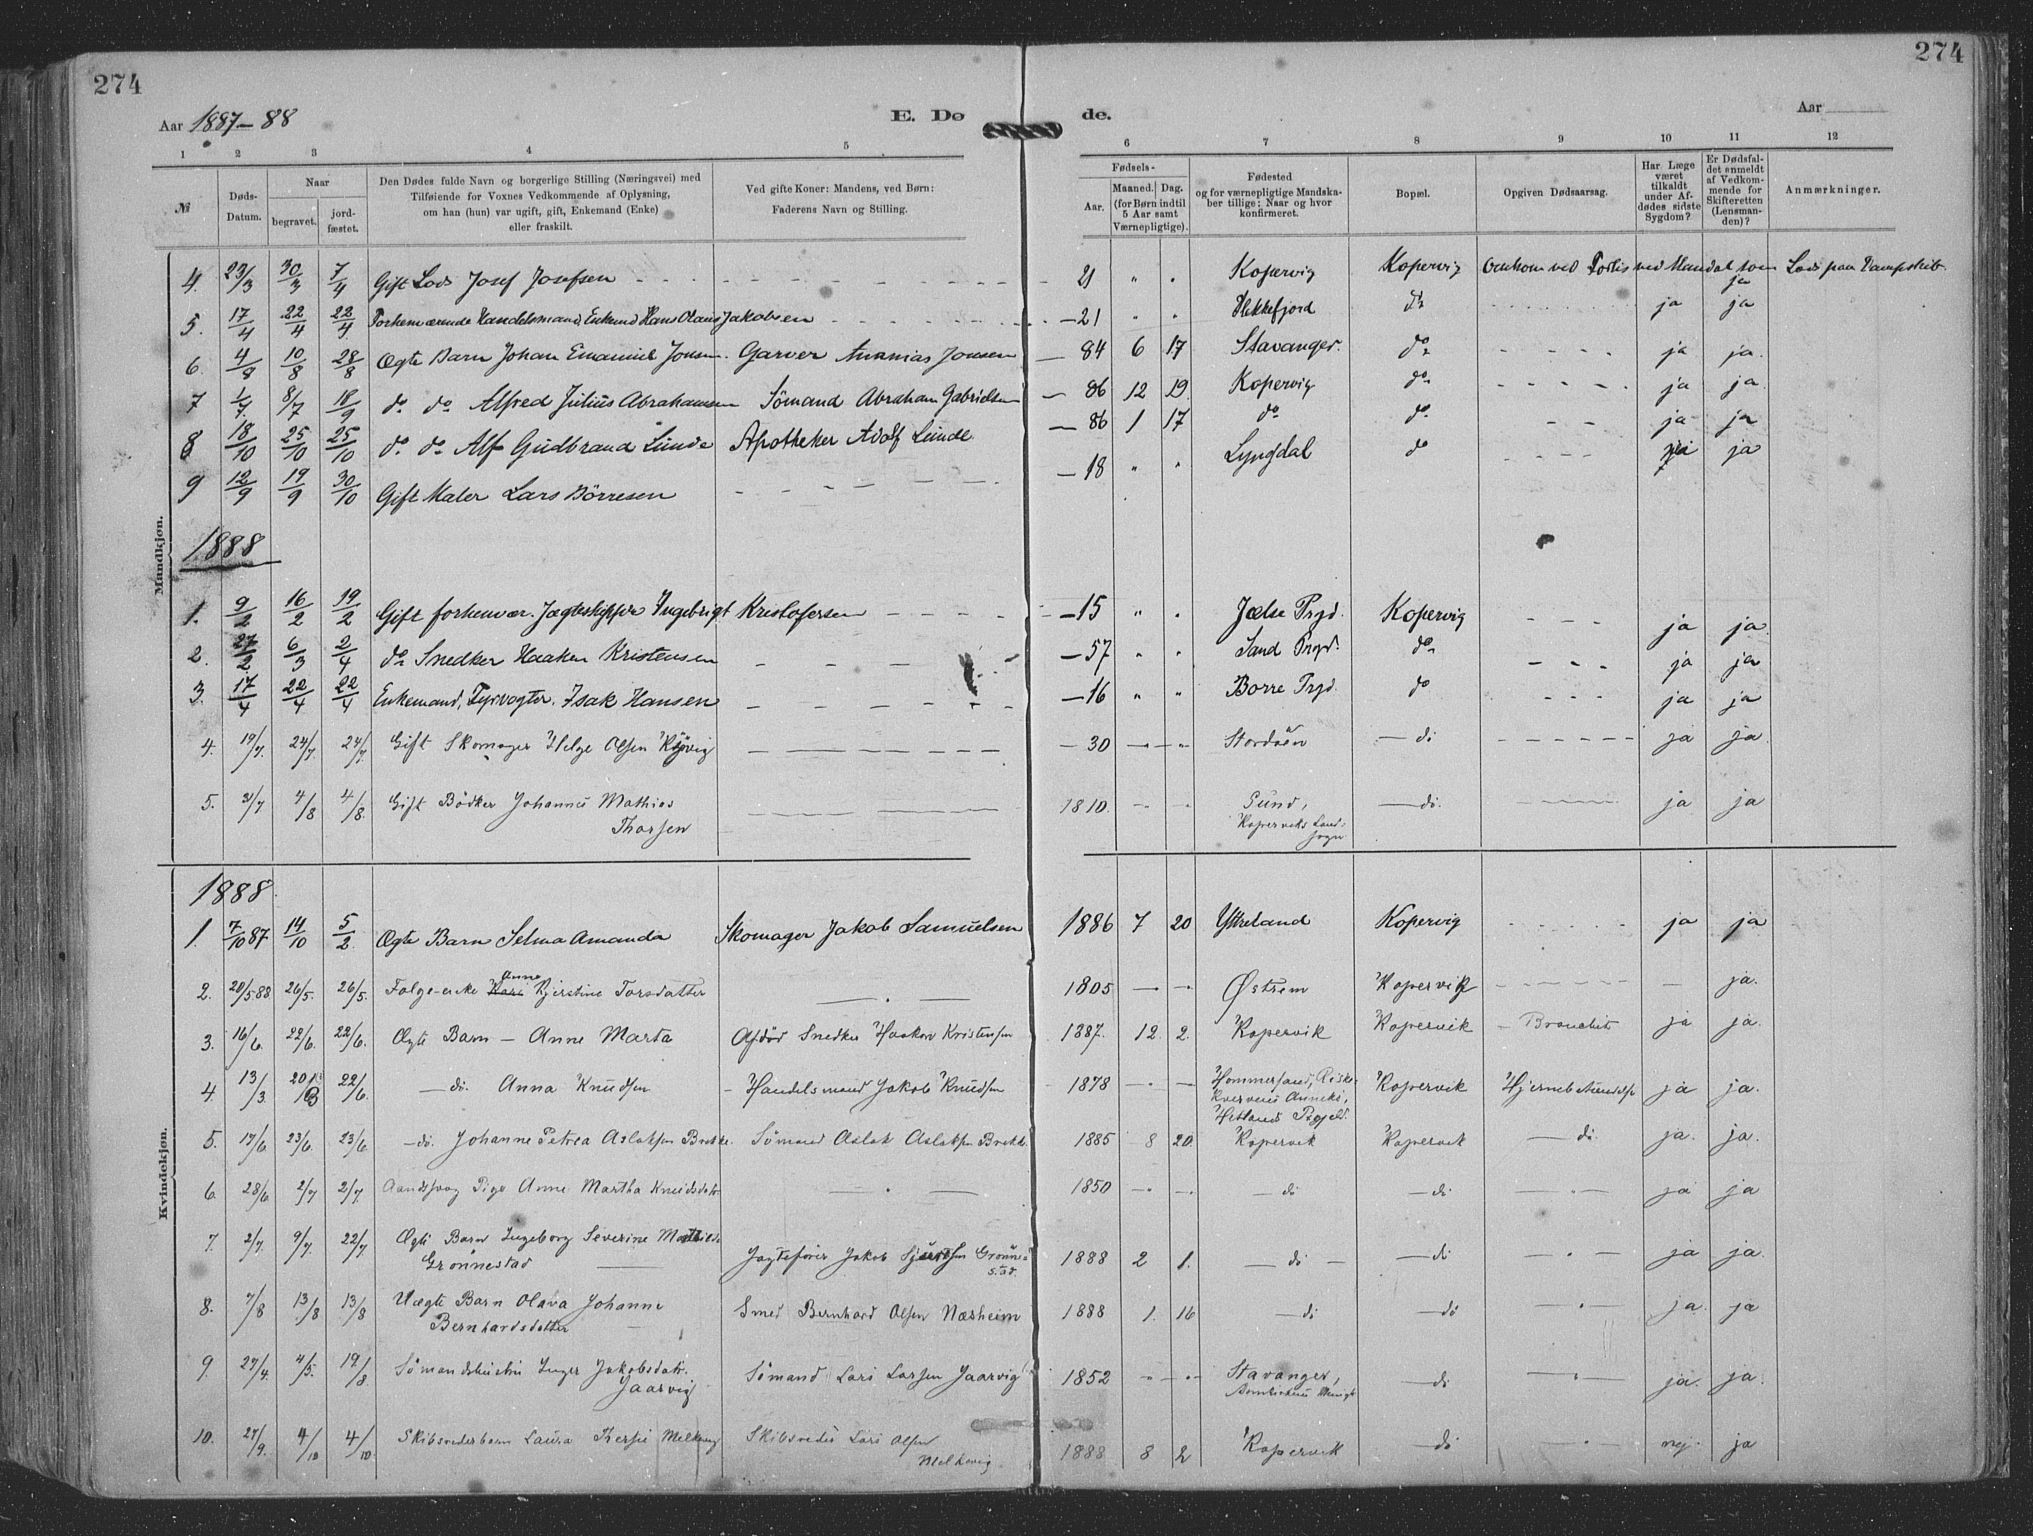 274
274
Aar 1887-88
E. Dø de.
Aar
1 2 3 4 5 6 7 8 9 10 11 12
№
Døds-Datum.
Naar
begravet.
jord-fæstet.
Den Dødes fulde Navn og borgerlige Stilling (Næringsvei) med
Tilføiende for Voxnes Vedkommende af Oplysning,
om han (hun) var ugift, gift, Enkemand (Enke)
eller fraskilt.
Ved gifte Koner: Mandens, ved Børn:
Faderens Navn og Stilling.
Fødsels-
Aar.
Maaned. Dag.
(for Børn indtil
5 Aar samt
Værnepligtige).
Fødested
og for værnepligtige Mandska-
ber tillige: Naar og hvor
konfirmeret.
Bopæl.
Opgiven Dødsaarsag.
Har Læge
været
tilkaldt
under Af-
dødes sidste
Sygdom?
Er Dødsfal-
det anmeldt
af Vedkom-
mende for
Skifteretten
(Lensman-
den)?
Anmærkninger.
Mandkjøn.
4. 23/3 30/3 7/4 Gift Lods Josef Josefsen 21 " " Kopervig Kopervig Omkom ved Forlis ved Mandal som Lods paa Dampskib. ja
5. 17/4 22/4 22/4 Forhenværende Handelsmand, Enkemd Hans Olaus Jakobsen - 21 " " Flekkefjord do ja ja
6. 4/8 10/8 28/8 Ægte Barn Johan Emanuel Jonsen. Garver Ananias Jonsen - 84 6 17 Stavanger. do ja ja.
7 1/7 8/7 18/9 do do Alfred Julius Abrahamsen Sömand Abraham Gabrielsen - 86 12 19 Kopervig do ja ja
8 18/10 25/10 25/10 do do Alf Gudbrand Lunde Apotheker Adolf Lunde - 86 1 17 do do ja ja
9 12/9 19/9 30/10 Gift Maler Lars Börresen - 18 " " Lyngdal do nei ja
1888
1. 9/2 16/2 19/2 Gift forhenvær. Jægteskipper Ingebrigt Kristofersen - 15 " " Jælse Prgd. Kopervig ja ja.
2. 27/2 6/3 2/4 do Snedker Haaken Kristensen - 57 " " Sand Prgd. do ja ja
3. 17/4 22/4 22/4 Enkemand, Fyrvogter. Isak Hansen - 16 " " Borre Prgd. do ja ja
4. 19/7. 24/7. 24/7. Gift Skomager Helge Olsen - 30 Stordöen do ja ja.
5. 31/7 4/8 4/8. Gift Bödker Johannes Mathias
Thorsen 1810. Sund,
Koperviks Land-
sogn do. ja ja
Kvindekjøn.
1888.
1. 7/10 87 14/10 5/2 Ægte Barn Selma Amanda Skomager Jakob Samuelsen 1886 7 20 Ytreland Kopervig ja ja
2. 20/5 88 26/5. 26/5. Anne
Kari Kjerstine Torsdatter 1805 Østrem Kopervik ja.
3. 16/6. 22/6. 22/6. Ægte Barn - Anne Marta Afdöd Snedker Haakon Kristensen 1887. 12. 2. Kopervik Kopervik - Bronchit ja ja.
4. 13/3. 22/6. do. Anna Knudsen - Handelsmand Jakob Knudsen 1878
Hetlands Kopervik ja ja.
5. 17/6. 23/6. 23/6. do. Johanne Petrea Aslaksen Brekke. Sömand Aslak Aslaksen Brekke 1885 8 20. Kopervik Kopervik do ja. ja.
6. 28/6. 2/7 2/7. Aandssvag Pige Anne Martha Knudsdatr. 1850 do do ja ja
7. 2/7. 9/7. 22/7 Ægte Barn Ingeborg Severine Mathilde
Grönnestad Jægtefører Jakob Grønne-
stad. 1888 2 1. do do ja ja.
8. 7/8 13/8 13/8 Uægte Barn Olava Johanne
Bernhardsdatter Smed Bernhard Olsen Næsheim 1888 1. 16 do do ja. ja
9. 27/4. 4/5. 19/8. Sömandshustru Inger Jakobsdatr.
Jaarvig Sömand Lars Larsen Jaarvig 1852 Stavanger,
do ja. ja.
10. 27/9. 4/10 4/10. Skibsrederbarn Laura Melkevig Skibsreder Lars Olsen
Melkevig 1888 8 2 Kopervik do nej. ja